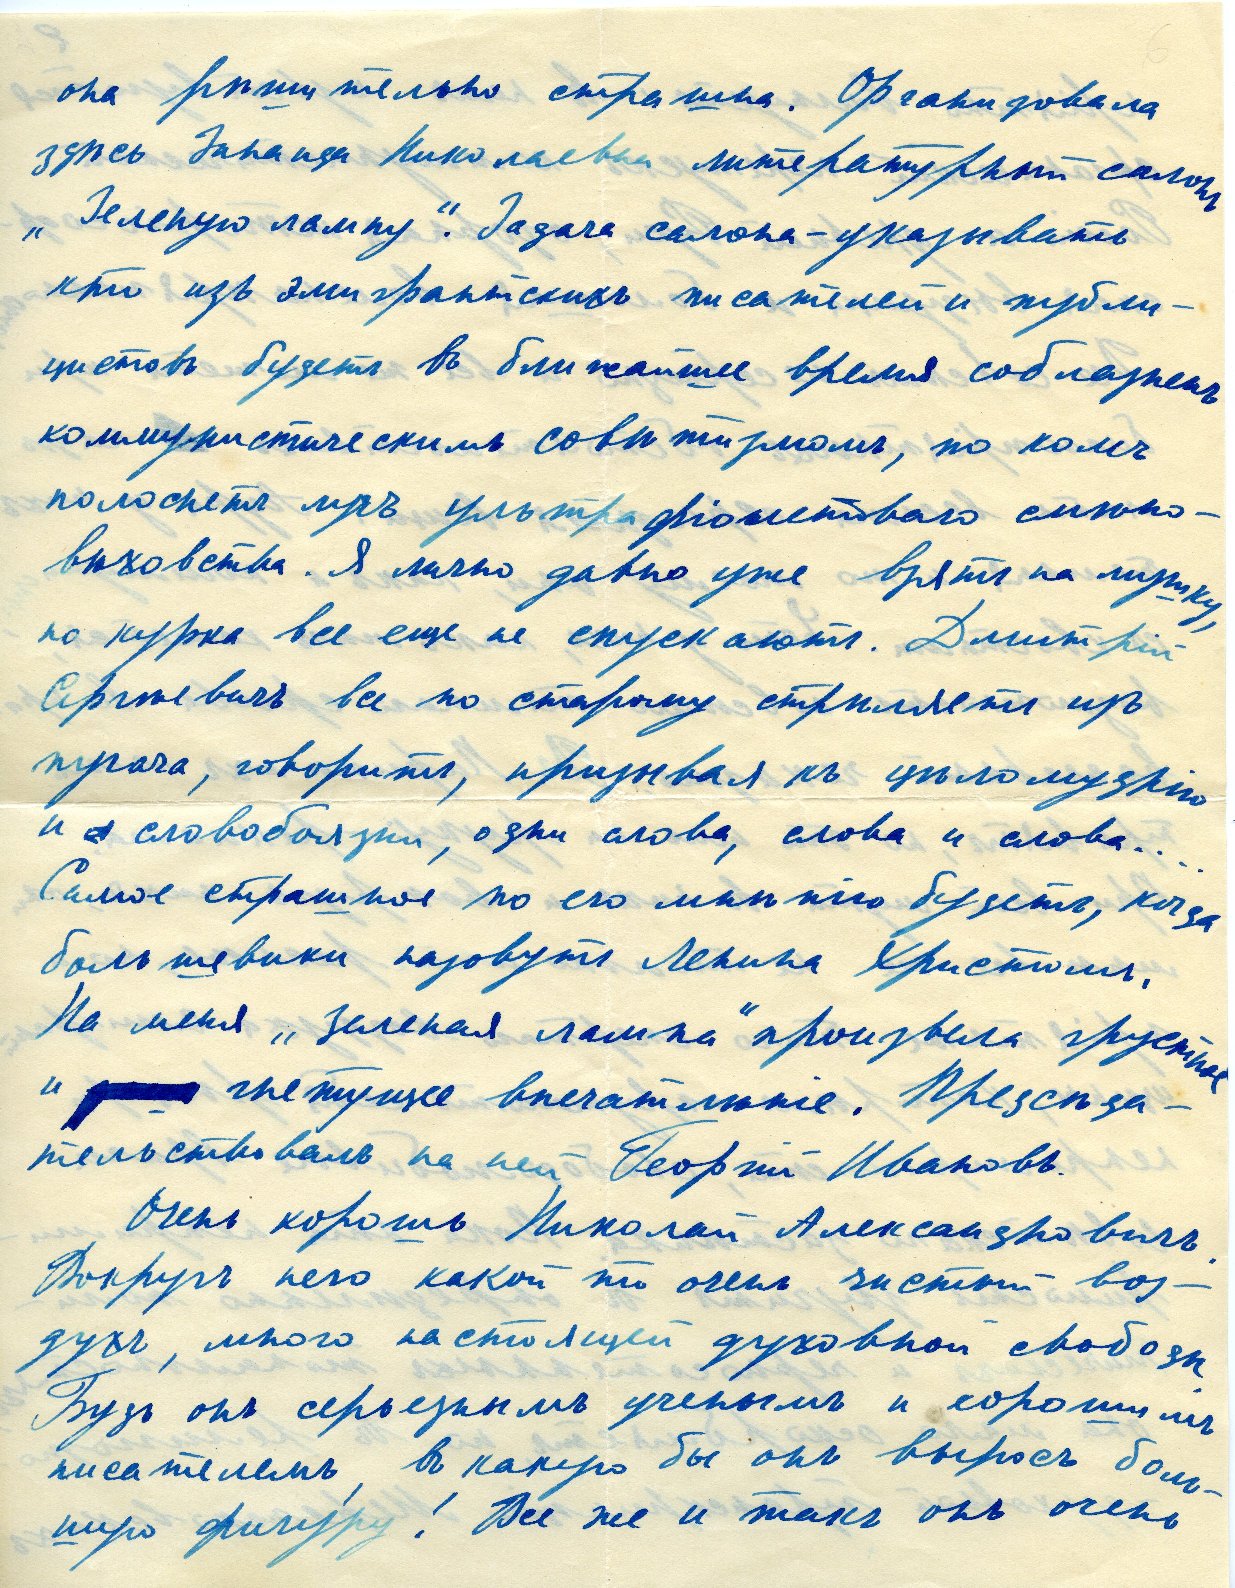 она рѣшительно страшна. Организовала
здѣсь Зинаида Николаевна литературный салонъ
„Зеленую лампу“. Задача салона – указывать
кто изъ эмигрантскихъ писателей и публи-
цистовъ будетъ въ ближайшее время соблазненъ
коммунистическимъ совѣтизмомъ, по комъ
полоснетъ лучъ ультрафіолетоваго смѣно-
вѣховства. Я лично давно уже взятъ на мушку,
но курка все еще не спускаютъ. Дмитрій
Сергѣевичъ все по старому стрѣляетъ изъ
пугача, говоритъ, призывая къ цѣломудрію
и словобоязни, одни слова, слова и слова....
Самое страшное по его мнѣнію будетъ, когда
большевики назовутъ Ленина Христомъ.
На меня „Зеленая лампа“ произвела грустное
и гнетущее впечатлѣніе. Предсѣда-
тельствовалъ на ней Георгій Ивановъ.
Очень хорошъ Николай Александровичъ.
Вокругъ него какой то очень чистый воз-
духъ, много настоящей духовной свободы
Будь онъ серьезнымъ ученымъ и хорошимъ
писателемъ, въ какую бы онъ выросъ боль-
шую фигуру! Все же и такъ онъ очень